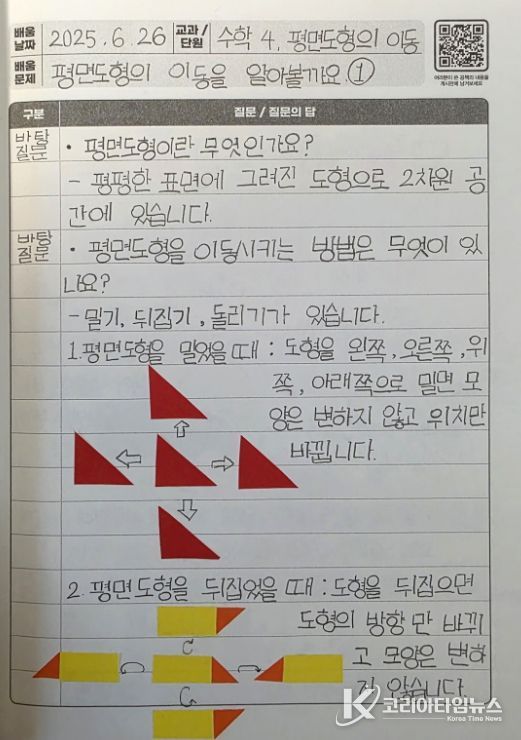 배움 날짜 2025.6.26 교과/단원 수학 4. 평면도형의 이동
배움 문제 평면도형의 이동을 알아볼까요 ①
구분 질문 / 질문의 답
바탕 질문 • 평면도형이란 무엇인가요?
- 평평한 표면에 그려진 도형으로 2차원 공
간에 있습니다.
바탕 질문 • 평면도형을 이동시키는 방법은 무엇이 있
나요?
- 밀기, 뒤집기, 돌리기가 있습니다.
1. 평면도형을 밀었을 때 : 도형을 왼쪽, 오른쪽, 위
쪽, 아래쪽으로 밀면 모
양은 변하지 않고 위치만
바뀝니다.
2. 평면도형을 뒤집었을 때 : 도형을 뒤집으면
도형의 방향만 바뀌
고 모양은 변하
지 않습니다.
코리아타임뉴스
Korea Time News